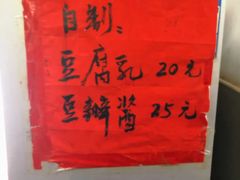 自制:
豆腐乳 20元
豆瓣酱 25元